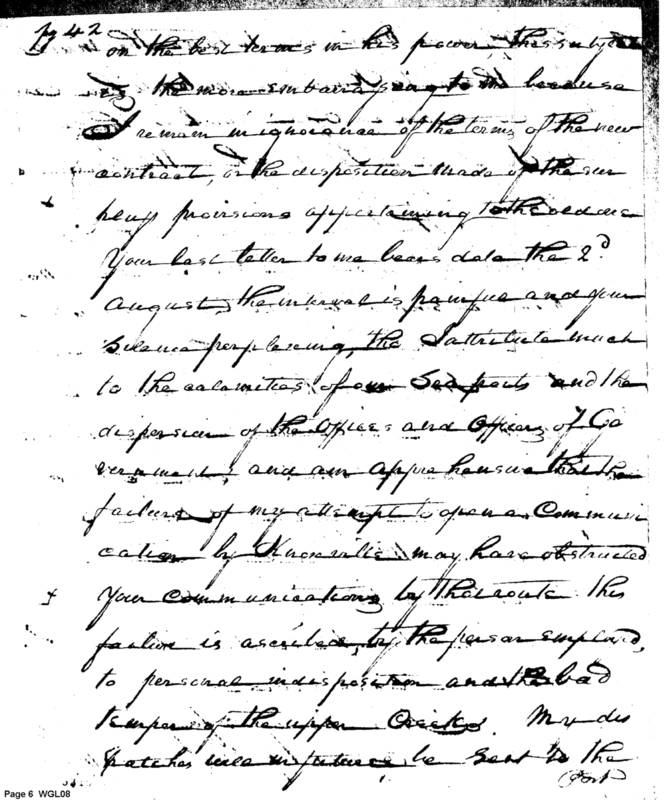 pg 42
on the best terms in his power this subject
is the more embarassing to me because
I remain in ignorance of the terms of the new
contract, or the disposition made of the sur
plus provisions appertaining to the old one
Your last letter to me bears date the 2d
august, the interval is painful and your
Silence perplexing, tho I attribute much
to the calamities of our Sea ports and the
dispersion of the Offices and Officers of Go
vernment; and am apprehensive that the
failure of my attempt to open a Communi
cation by Knoxville may have obstructed
Your communications by that route this
failure is ascribed, by the person employed,
to personal indisposition and the bad
temper of the upper Creeks. My dis
patches will in future be Sent to the
Post
Page 6 WGL08